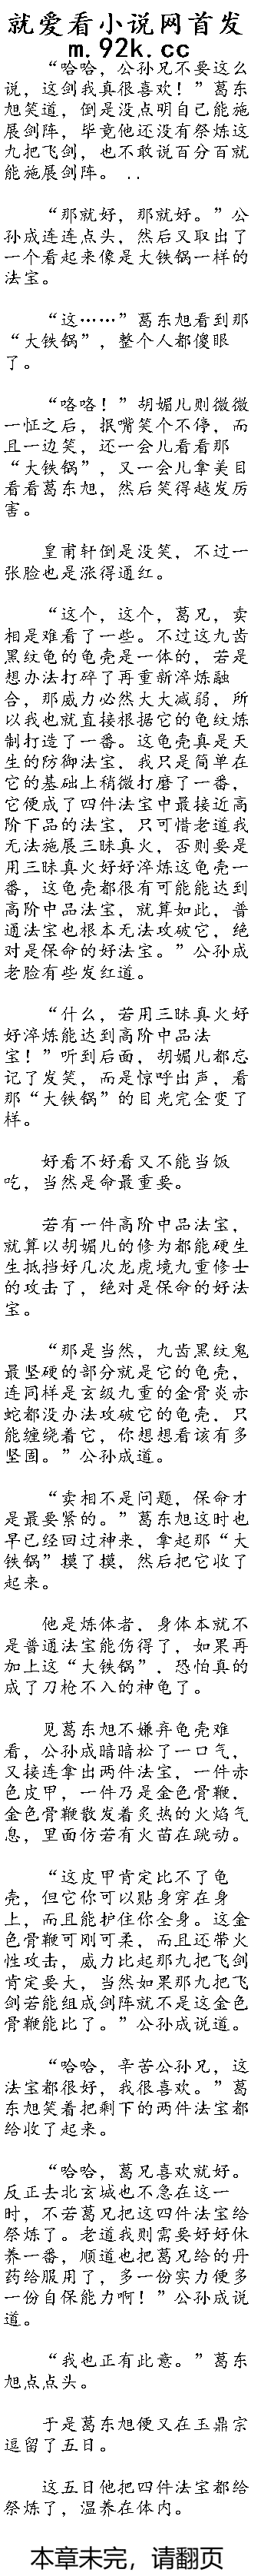 就爱看小说网首发
m.92k.cc
“哈哈，公孙兄不要这么
说，这剑我真很喜欢！”葛东
旭笑道，倒是没点明自己能施
展剑阵，毕竟他还没有祭炼这
九把飞剑，也不敢说百分百就
能施展剑阵。 ..
“那就好，那就好。”公
孙成连连点头，然后又取出了
一个看起来像是大铁锅一样的
法宝。
“这……”葛东旭看到那
“大铁锅”，整个人都傻眼
了。
“咯咯！”胡媚儿则微微
一怔之后，抿嘴笑个不停，而
且一边笑，还一会儿看看那
“大铁锅”，又一会儿拿美目
看看葛东旭，然后笑得越发厉
害。
皇甫轩倒是没笑，不过一
张脸也是涨得通红。
“这个，这个，葛兄，卖
相是难看了一些。不过这九齿
黑纹龟的龟壳是一体的，若是
想办法打碎了再重新淬炼融
合，那威力必然大大减弱，所
以我也就直接根据它的龟纹炼
制打造了一番。这龟壳真是天
生的防御法宝，我只是简单在
它的基础上稍微打磨了一番，
它便成了四件法宝中最接近高
阶下品的法宝，只可惜老道我
无法施展三昧真火，否则要是
用三昧真火好好淬炼这龟壳一
番，这龟壳都很有可能能达到
高阶中品法宝，就算如此，普
通法宝也根本无法攻破它，绝
对是保命的好法宝。”公孙成
老脸有些发红道。
“什么，若用三昧真火好
好淬炼能达到高阶中品法
宝！”听到后面，胡媚儿都忘
记了发笑，而是惊呼出声，看
那“大铁锅”的目光完全变了
样。
好看不好看又不能当饭
吃，当然是命最重要。
若有一件高阶中品法宝，
就算以胡媚儿的修为都能硬生
生抵挡好几次龙虎境九重修士
的攻击了，绝对是保命的好法
宝。
“那是当然，九齿黑纹鬼
最坚硬的部分就是它的龟壳，
连同样是玄级九重的金骨炎赤
蛇都没办法攻破它的龟壳，只
能缠绕着它，你想想看该有多
坚固。”公孙成道。
“卖相不是问题，保命才
是最要紧的。”葛东旭这时也
早已经回过神来，拿起那“大
铁锅”摸了摸，然后把它收了
起来。
他是炼体者，身体本就不
是普通法宝能伤得了，如果再
加上这“大铁锅”，恐怕真的
成了刀枪不入的神龟了。
见葛东旭不嫌弃龟壳难
看，公孙成暗暗松了一口气，
又接连拿出两件法宝，一件赤
色皮甲，一件乃是金色骨鞭，
金色骨鞭散发着炙热的火焰气
息，里面仿若有火苗在跳动。
“这皮甲肯定比不了龟
壳，但它你可以贴身穿在身
上，而且能护住你全身。这金
色骨鞭可刚可柔，而且还带火
性攻击，威力比起那九把飞剑
肯定要大，当然如果那九把飞
剑若能组成剑阵就不是这金色
骨鞭能比了。”公孙成说道。
“哈哈，辛苦公孙兄，这
法宝都很好，我很喜欢。”葛
东旭笑着把剩下的两件法宝都
给收了起来。
“哈哈，葛兄喜欢就好。
反正去北玄城也不急在这一
时，不若葛兄把这四件法宝给
祭炼了。老道我则需要好好休
养一番，顺道也把葛兄给的丹
药给服用了，多一份实力便多
一份自保能力啊！”公孙成说
道。
“我也正有此意。”葛东
旭点点头。
于是葛东旭便又在玉鼎宗
逗留了五日。
这五日他把四件法宝都给
祭炼了，温养在体内。
本章未完，请翻页